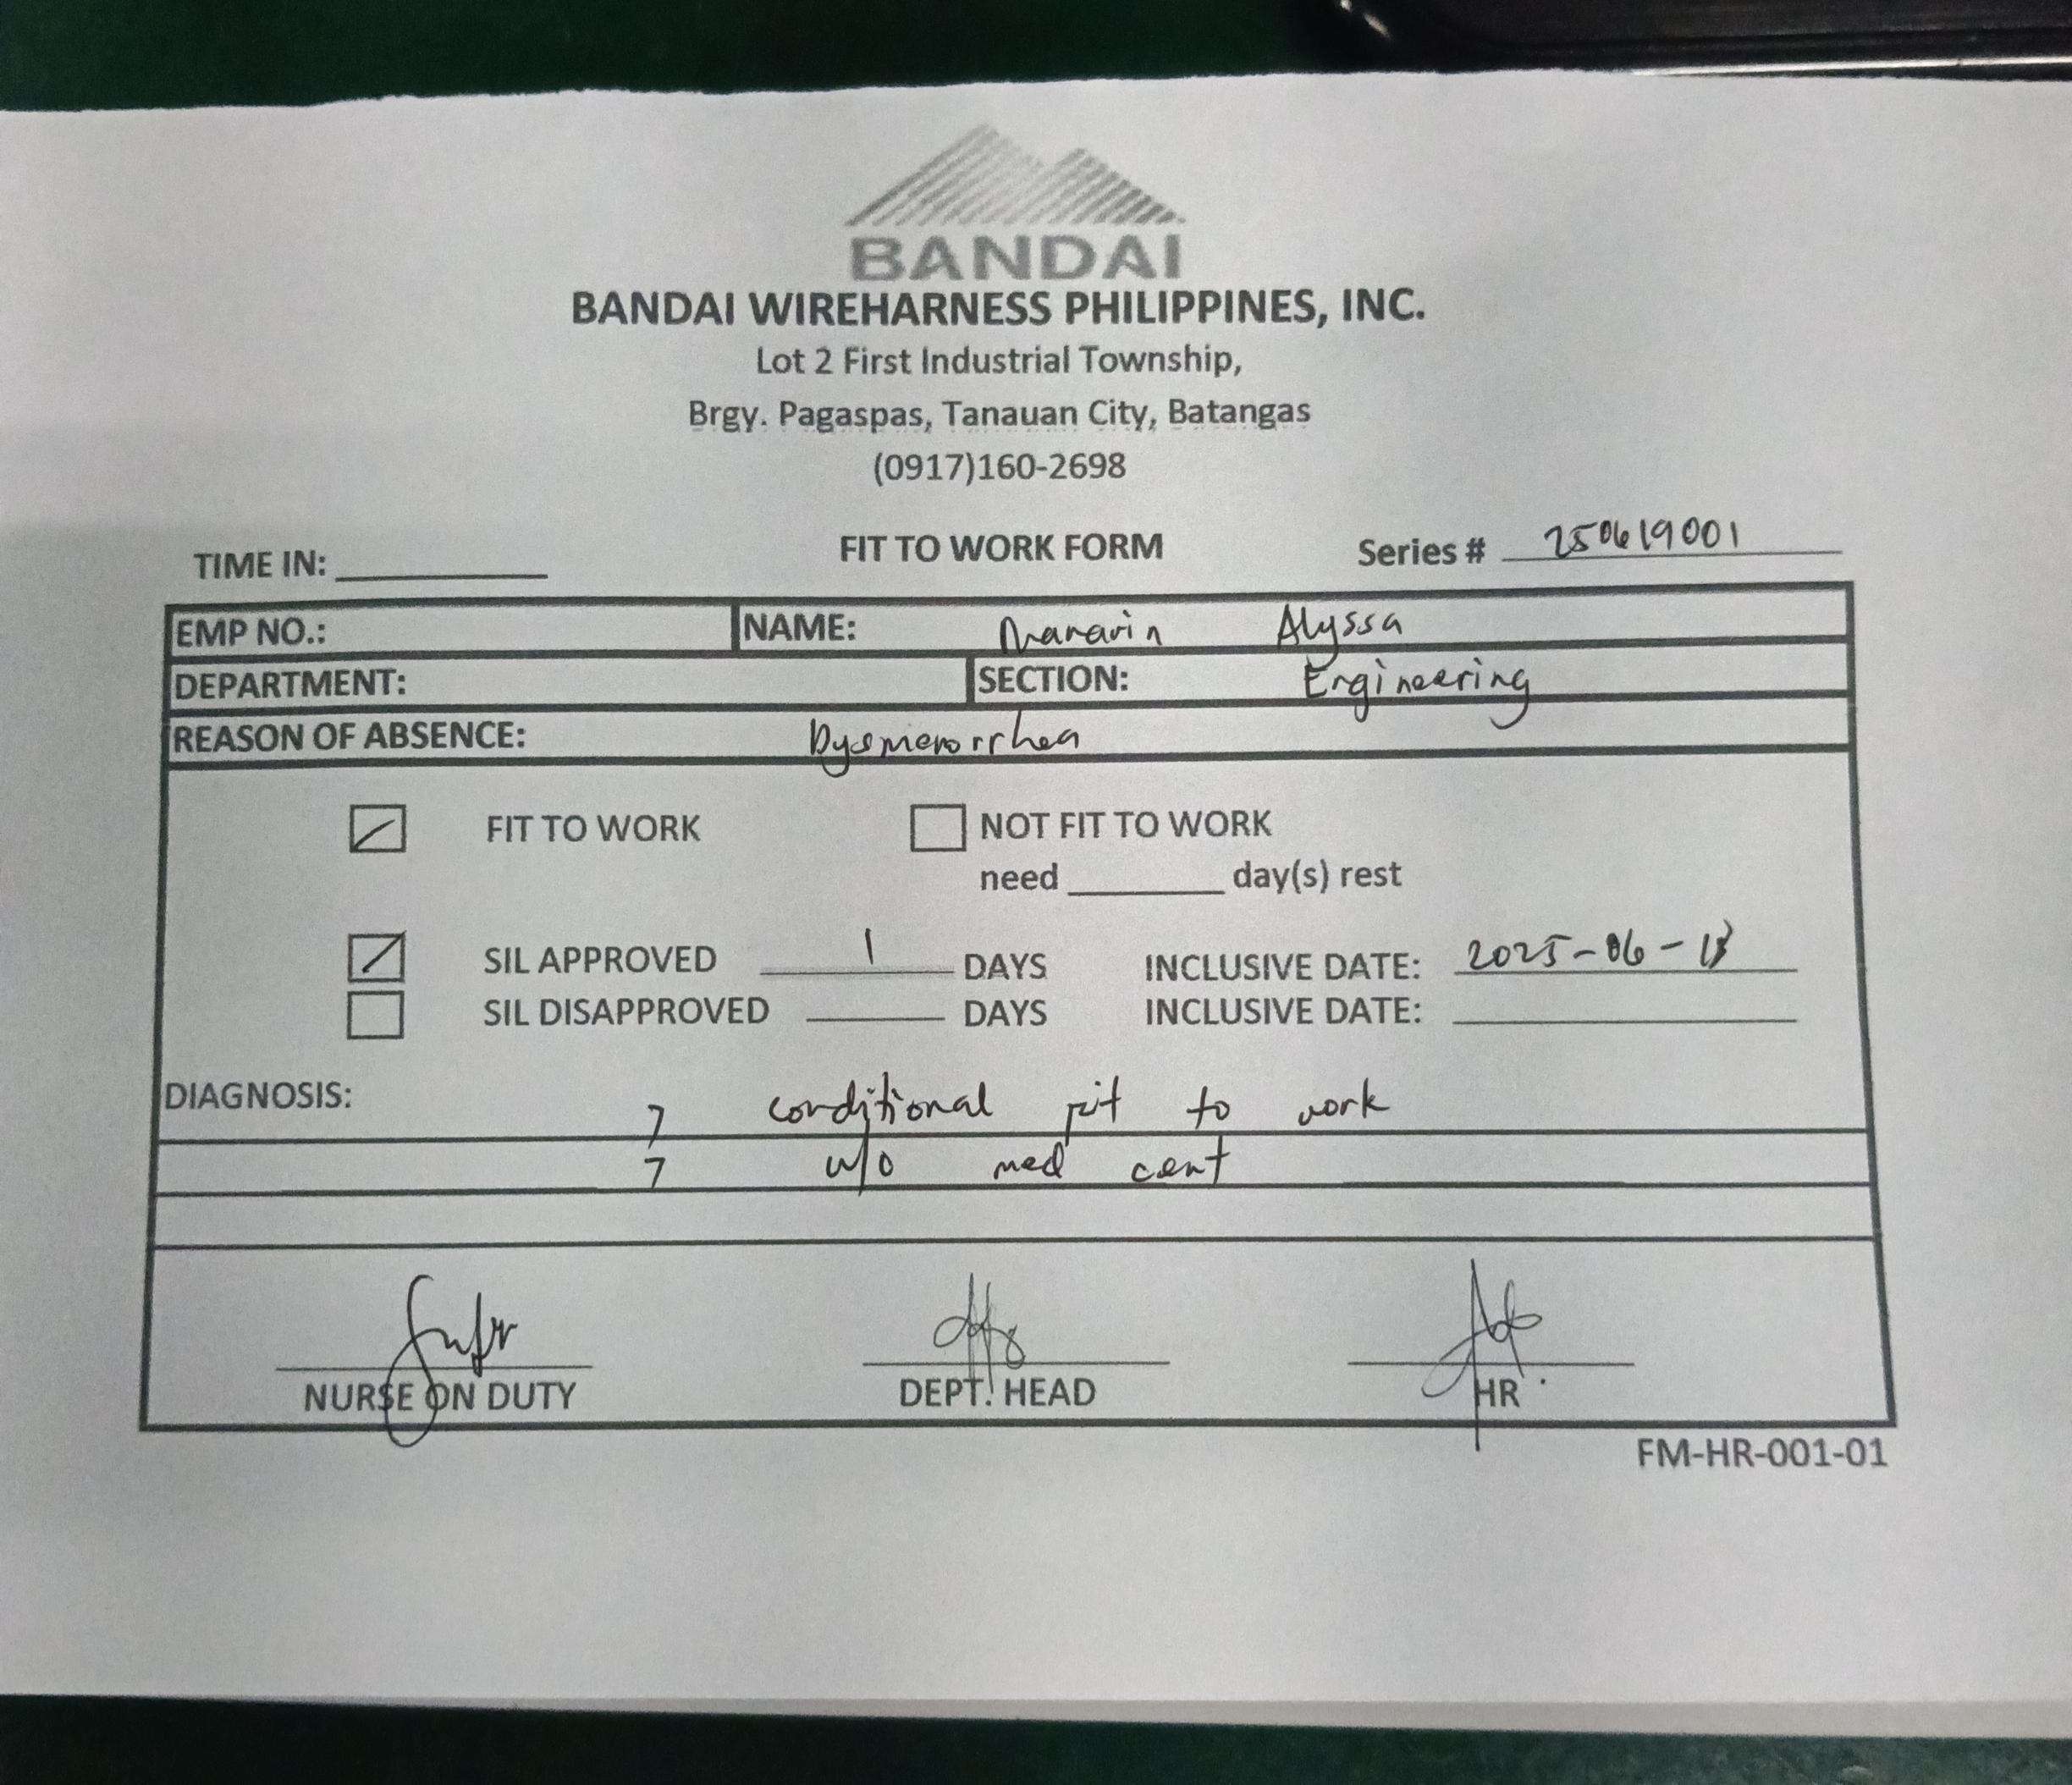 BANDAI
BANDAI WIREHARNESS PHILIPPINES, INC.
Lot 2 First Industrial Township,
Brgy. Pagaspas, Tanauan City, Batangas
(0917)160-2698
TIME IN: FIT TO WORK FORM Series # 250619001
EMP NO.: NAME: Alyssa
DEPARTMENT: SECTION: Engineering
REASON OF ABSENCE: Dysmenorrhea
FIT TO WORK NOT FIT TO WORK
need day(s) rest
SIL APPROVED 1 DAYS INCLUSIVE DATE: 2025-06-
SIL DISAPPROVED DAYS INCLUSIVE DATE:
DIAGNOSIS: conditional fit to work
w/o med cert
NURSE ON DUTY DEPT. HEAD HR
FM-HR-001-01